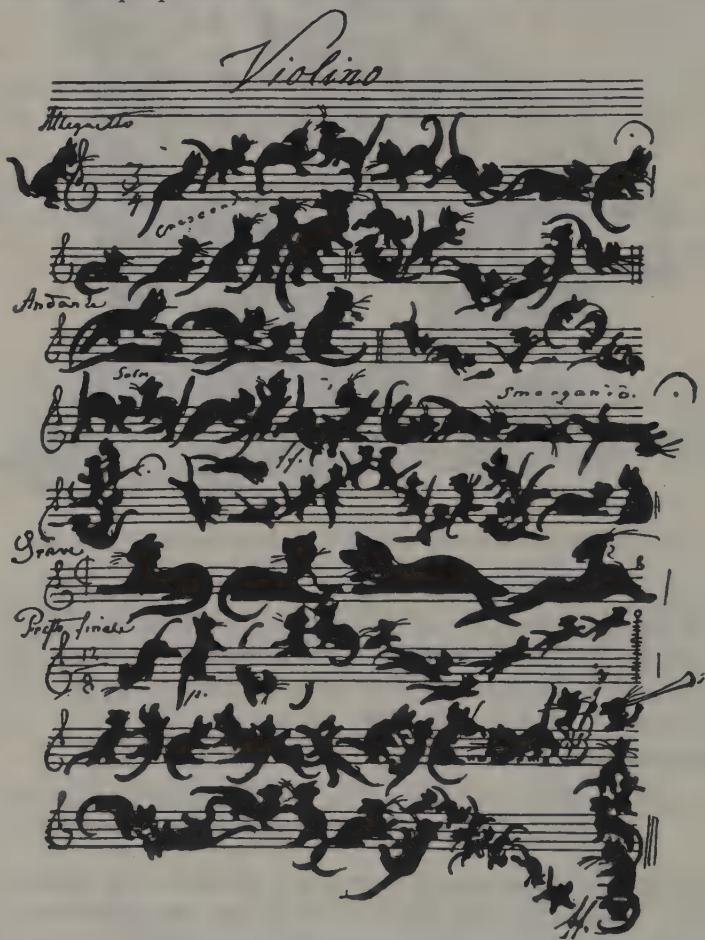 Violino
Allegretto
3
4
crescend
Andante
Solo
Smorzando.
ff.
Grave
Presto finale
12
8
p.
ff.